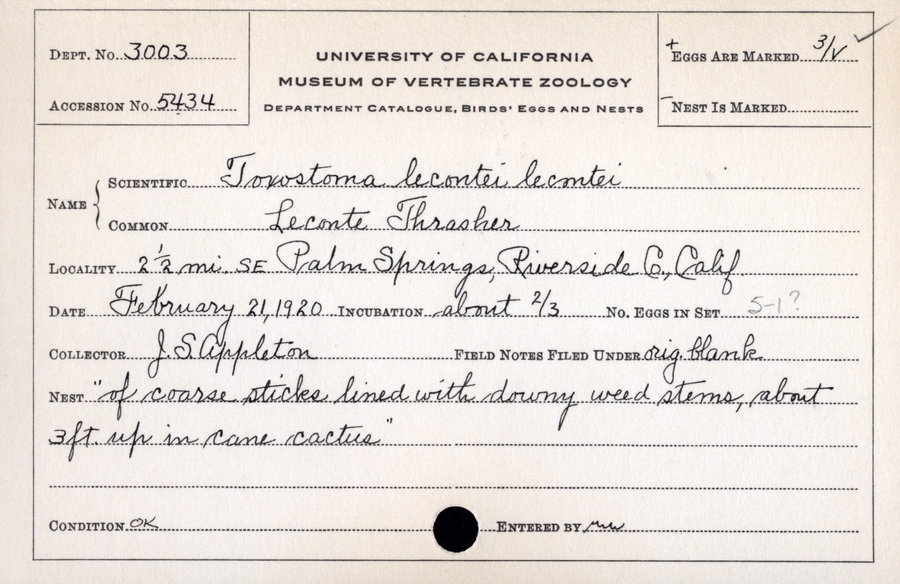 DEPT. NO. 3003
ACCESSION NO. 5434
UNIVERSITY OF CALIFORNIA
MUSEUM OF VERTEBRATE ZOOLOGY
DEPARTMENT CATALOGUE, BIRDS' EGGS AND NESTS
+EGGS ARE MARKED 3/✓ ✓
-NEST IS MARKED
NAME
SCIENTIFIC Toxostoma lecontei lecontei
COMMON Leconte Thrasher
LOCALITY 2 1/2 mi. SE Palm Springs, Riverside Co., Calif.
DATE February 21, 1920 INCUBATION about 2/3 NO. EGGS IN SET 5-1?
COLLECTOR J. S. Appleton FIELD NOTES FILED UNDER orig. blank
NEST "of coarse sticks lined with downy weed stems, about
3 ft. up in cane cactus"
CONDITION OK ENTERED BY